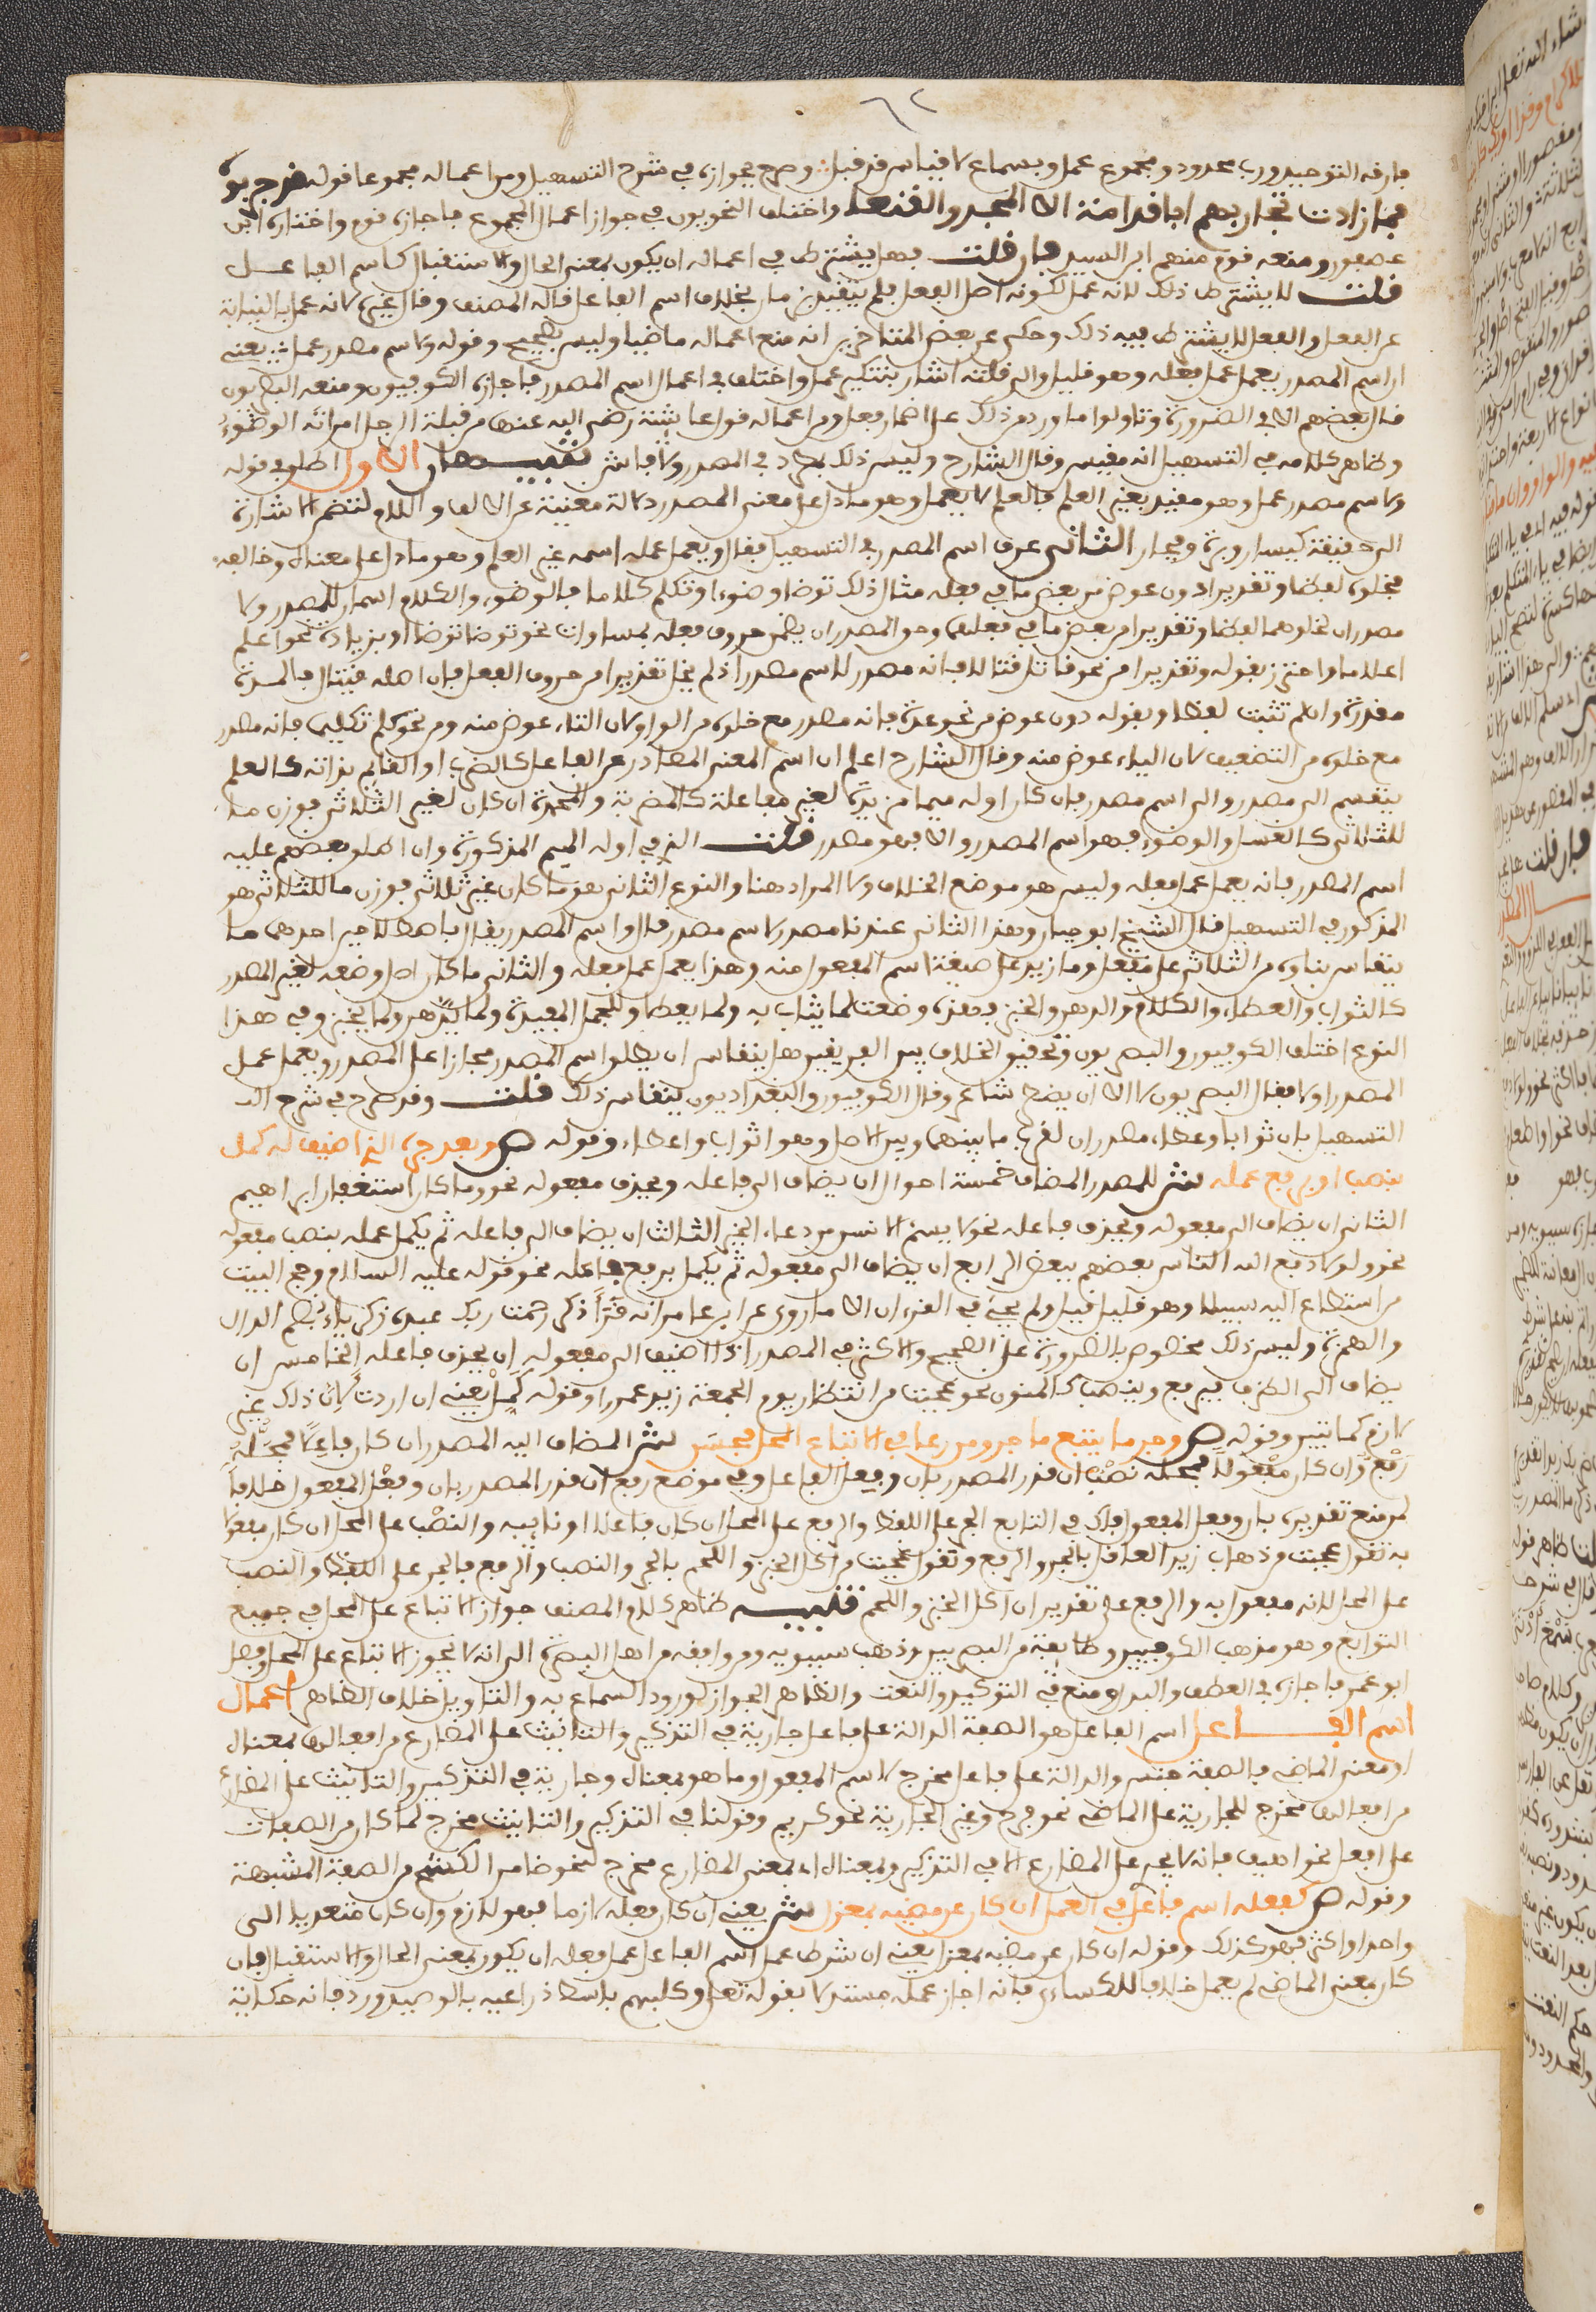 فارقه التوحيد ورب محدود ومجموع عمل وبسماع لا قياس قد قبل وصرح بجوازه في شرح التسهيل ومن اعماله مجموعا قوله قد جربوه
فما زادت تجاربهم ابا قدامة الا المجد والفنعا واختلف النحويون في جواز اعمال المجموع فاجازه قوم واختاره ابن
عصفور ومنعه قوم منهم ابن السيد فان قلت فهل يشترط في اعماله ان يكون بمعنى الحال والاستقبال كاسم الفاعل
قلت لا يشترط ذلك لانه عمل لكونه اصل الفعل فلم يتقيد بزمان بخلاف اسم الفاعل قاله المصنف وقال غيره لانه عمل بالنيابة
عن الفعل والفعل لا يشترط فيه ذلك وحكى عن بعض المتاخرين انه منع اعماله ماضيا وليس بصحيح وقوله ولاسم مصدر عمل يعني
ان اسم المصدر يعمل عمل فعله وهو قليل والى قلته اشار بتنكير عمل واختلف في اعمال اسم المصدر فاجازه الكوفيون ومنعه البصريون
قال بعضهم الا في الضرورة وتاولوا ما ورد من ذلك على اضمار فعل ومن اعماله قول عائشة رضي الله عنها من قبلة الرجل امراته الوضوء
وظاهر كلامه في التسهيل انه مقيس وقال الشارح وليس ذلك بمطرد في المصدر ولا فاش تنبيهان الاول اطلق في قوله
ولاسم مصدر عمل وهو مقيد بغير العلم فالعلم لا يعمل وهو ما دل على معنى المصدر دلالة مغنية عن الالف واللام لتضمن الاشارة
الى حقيقة كيسار وبرة وفجار الثاني عرف اسم المصدر في التسهيل فقال ويعمل عمله اسمه غير العلم وهو ما دل على معناه وخالفه
بخلوه لفظا وتقديرا دون عوض من بعض ما في فعله مثال ذلك توضا وضوءا وتكلم كلاما فالوضوء والكلام اسمان للمصدر ولا
مصدران لخلوهما لفظا وتقديرا من بعض ما في فعلهما وحق المصدر ان يضمن حروف فعله بمساواة نحو توضا توضؤا وبزيادة نحو اعلم
اعلاما واحترز بقوله وتقديرا من نحو قاتل قتالا فانه مصدر لا اسم مصدر اذ لم يخل تقديرا من حروف الفعل فان اصله قيتال فالمدة
مقدرة وان لم تثبت لفظا وبقوله دون عوض من نحو عدة فانه مصدر مع خلوه من الواو لان التاء عوض منه ومن نحو كلم تكليما فانه مصدر
مع خلوه من التضعيف لان الياء عوض منه وقال الشارح اعلم ان اسم المعنى الصادر عن الفاعل كالضرب او القائم بذاته كالعلم
ينقسم الى مصدر والى اسم مصدر فان كان اوله ميما مزيدة لغير مفاعلة كالمضربة والمحمدة ان كان لغير الثلاثي بوزن ما
للثلاثي كالغسل والوضوء فهو اسم المصدر والا فهو مصدر قلت الذي في اوله الميم المذكورة وان اطلق بعضهم عليه
اسم المصدر فانه يعمل عمل فعله وليس هو موضع الخلاف ولا المراد هنا والنوع الثاني هو ما كان غير ثلاثي بوزن ما للثلاثي هو
المذكور في التسهيل قال الشيخ ابو حيان وهذا الثاني عندنا مصدر لا اسم مصدر قال واسم المصدر يقال باصطلاحين احدهما ما
ينقاس بناؤه من الثلاثي على مفعل وما زيد على صيغة اسم المفعول منه وهذا يعمل عمل فعله والثاني ما كان اصل وضعه لغير المصدر
كالثواب والعطاء والكلام والدهن والخبز فهذه وضعت لما يثاب به ولما يعطى وللجمل المفيدة ولما يدهن ولما يخبز وفي هذا
النوع اختلف الكوفيون والبصريون وتحقيق الخلاف بين الفريقين هل ينقاس ان يطلق اسم المصدر مجازا على المصدر ويعمل عمل
المصدر اولا فقال البصريون لا الا ان يضطر شاعر وقال الكوفيون والبغداديون ينقاس ذلك قلت وقد صرح في شرح الت
التسهيل بان ثوابا وعطاء مصدران لقرب ما بينهما وبين الاصل وهو اثواب واعطاء وقوله ص وبعد جره الذي اضيف له كمل
بنصب او برفع عمله ش للمصدر المضاف خمسة احوال ان يضاف الى فاعله ويحذف مفعوله نحو وما كان استغفار ابراهيم
الثاني ان يضاف الى مفعوله ويحذف فاعله نحو لا يسئم الانسن من دعاء الخير الثالث ان يضاف الى فاعله ثم يكمل عمله بنصب مفعوله
نحو ولولا دفع الله الناس بعضهم ببعض الرابع ان يضاف الى مفعوله ثم يكمل برفع فاعله نحو قوله عليه السلام وحج البيت
من استطاع اليه سبيلا وهو قليل قيل ولم يجئ في القرءان الا ما روي عن ابن عامر انه قرأ ذكر رحمت ربك عبده زكرياء بضم الدال
والهمزة وليس ذلك مخصوص بالضرورة على الصحيح والاكثر في المصدر اذا اضيف الى مفعوله ان يحذف فاعله الخامس ان
يضاف الى الظرف فيرفع وينصب كالمنون نحو عجبت من انتظار يوم الجمعة زيد عمرا وقوله كمل يعني ان اردت لان ذلك غير
لازم كما تبين وقوله ص وجر ما يتبع ما جر ومن راعى في الاتباع المحل فحسن ش المضاف اليه المصدر ان كان فاعلا فمحله
رفع وان كان مفعولا فمحله نصب ان قدر المصدر بان وفعل الفاعل وفي موضع رفع ان قدر المصدر بان وفعل المفعول خلافا
لمن منع تقديره بان وفعل المفعول فلك في التابع الجر على اللفظ والرفع على المحل ان كان فاعلا او نائبه والنصب على المحل ان كان مفعولا
به تقول عجبت من ذهاب زيد العاقل بالجر والرفع وتقول عجبت من اكل الخبز واللحم بالجر والنصب والرفع فالجر على اللفظ والنصب
على المحل لانه مفعول به والرفع على تقدير ان اكل الخبز واللحم تنبيه ظاهر كلام المصنف جواز الاتباع على المحل في جميع
التوابع وهو مذهب الكوفيين وطائفة من البصريين وذهب سيبويه ومن وافقه من اهل البصرة الى انه لا يجوز الاتباع على المحل وفصل
ابو عمر فاجازه في العطف والبدل ومنع في التوكيد والنعت والظاهر الجواز لورود السماع به والتاويل خلاف الظاهر اعمال
اسم الفاعل اسم الفاعل هو الصفة الدالة على فاعل جارية في التذكير والتانيث على المضارع من افعالها بمعناه
او معنى الماضي فالصفة جنس والدالة على فاعل مخرج لاسم المفعول وما هو بمعناه وجارية في التذكير والتانيث على المضارع
من افعالها مخرج للجارية على الماضي نحو فرح وغير الجارية نحو كريم وقولنا في التذكير والتانيث مخرج لما كان من الصفات
على افعل نحو اهيف فانه لا يجري على المضارع الا في التذكير وبمعناه اي بمعنى المضارع مخرج لنحو ضامر الكشح من الصفة المشبهة
وقوله ص كفعله اسم فاعل في العمل ان كان عن مضيه بمعزل ش يعني ان كان فعله لازما فهو لازم وان كان متعديا الى
واحد او اكثر فهو كذلك وقوله ان كان عن مضيه بمعزل يعني ان شرط عمل اسم الفاعل عمل فعله ان يكون بمعنى الحال والاستقبال فان
كان بمعنى الماضي لم يعمل خلافا للكسائي فانه اجاز عمله مستدلا بقوله تعلى وكلبهم باسط ذراعيه بالوصيد ورد فانه حكاية